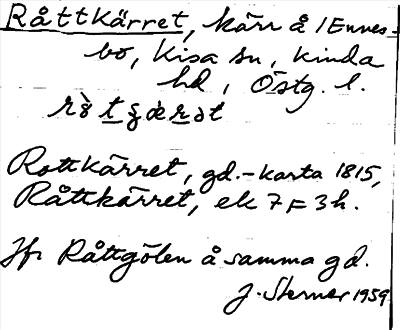 Råttkärret, kärr å /Ennes-
bo, Kisa sn, kinda
hd, Östg. l.
Rottkärret, gd.-karta 1815,
Råttkärret, ek 7F3h.
Jfr Råttgölen å samma gd.
J. Sterner 1959